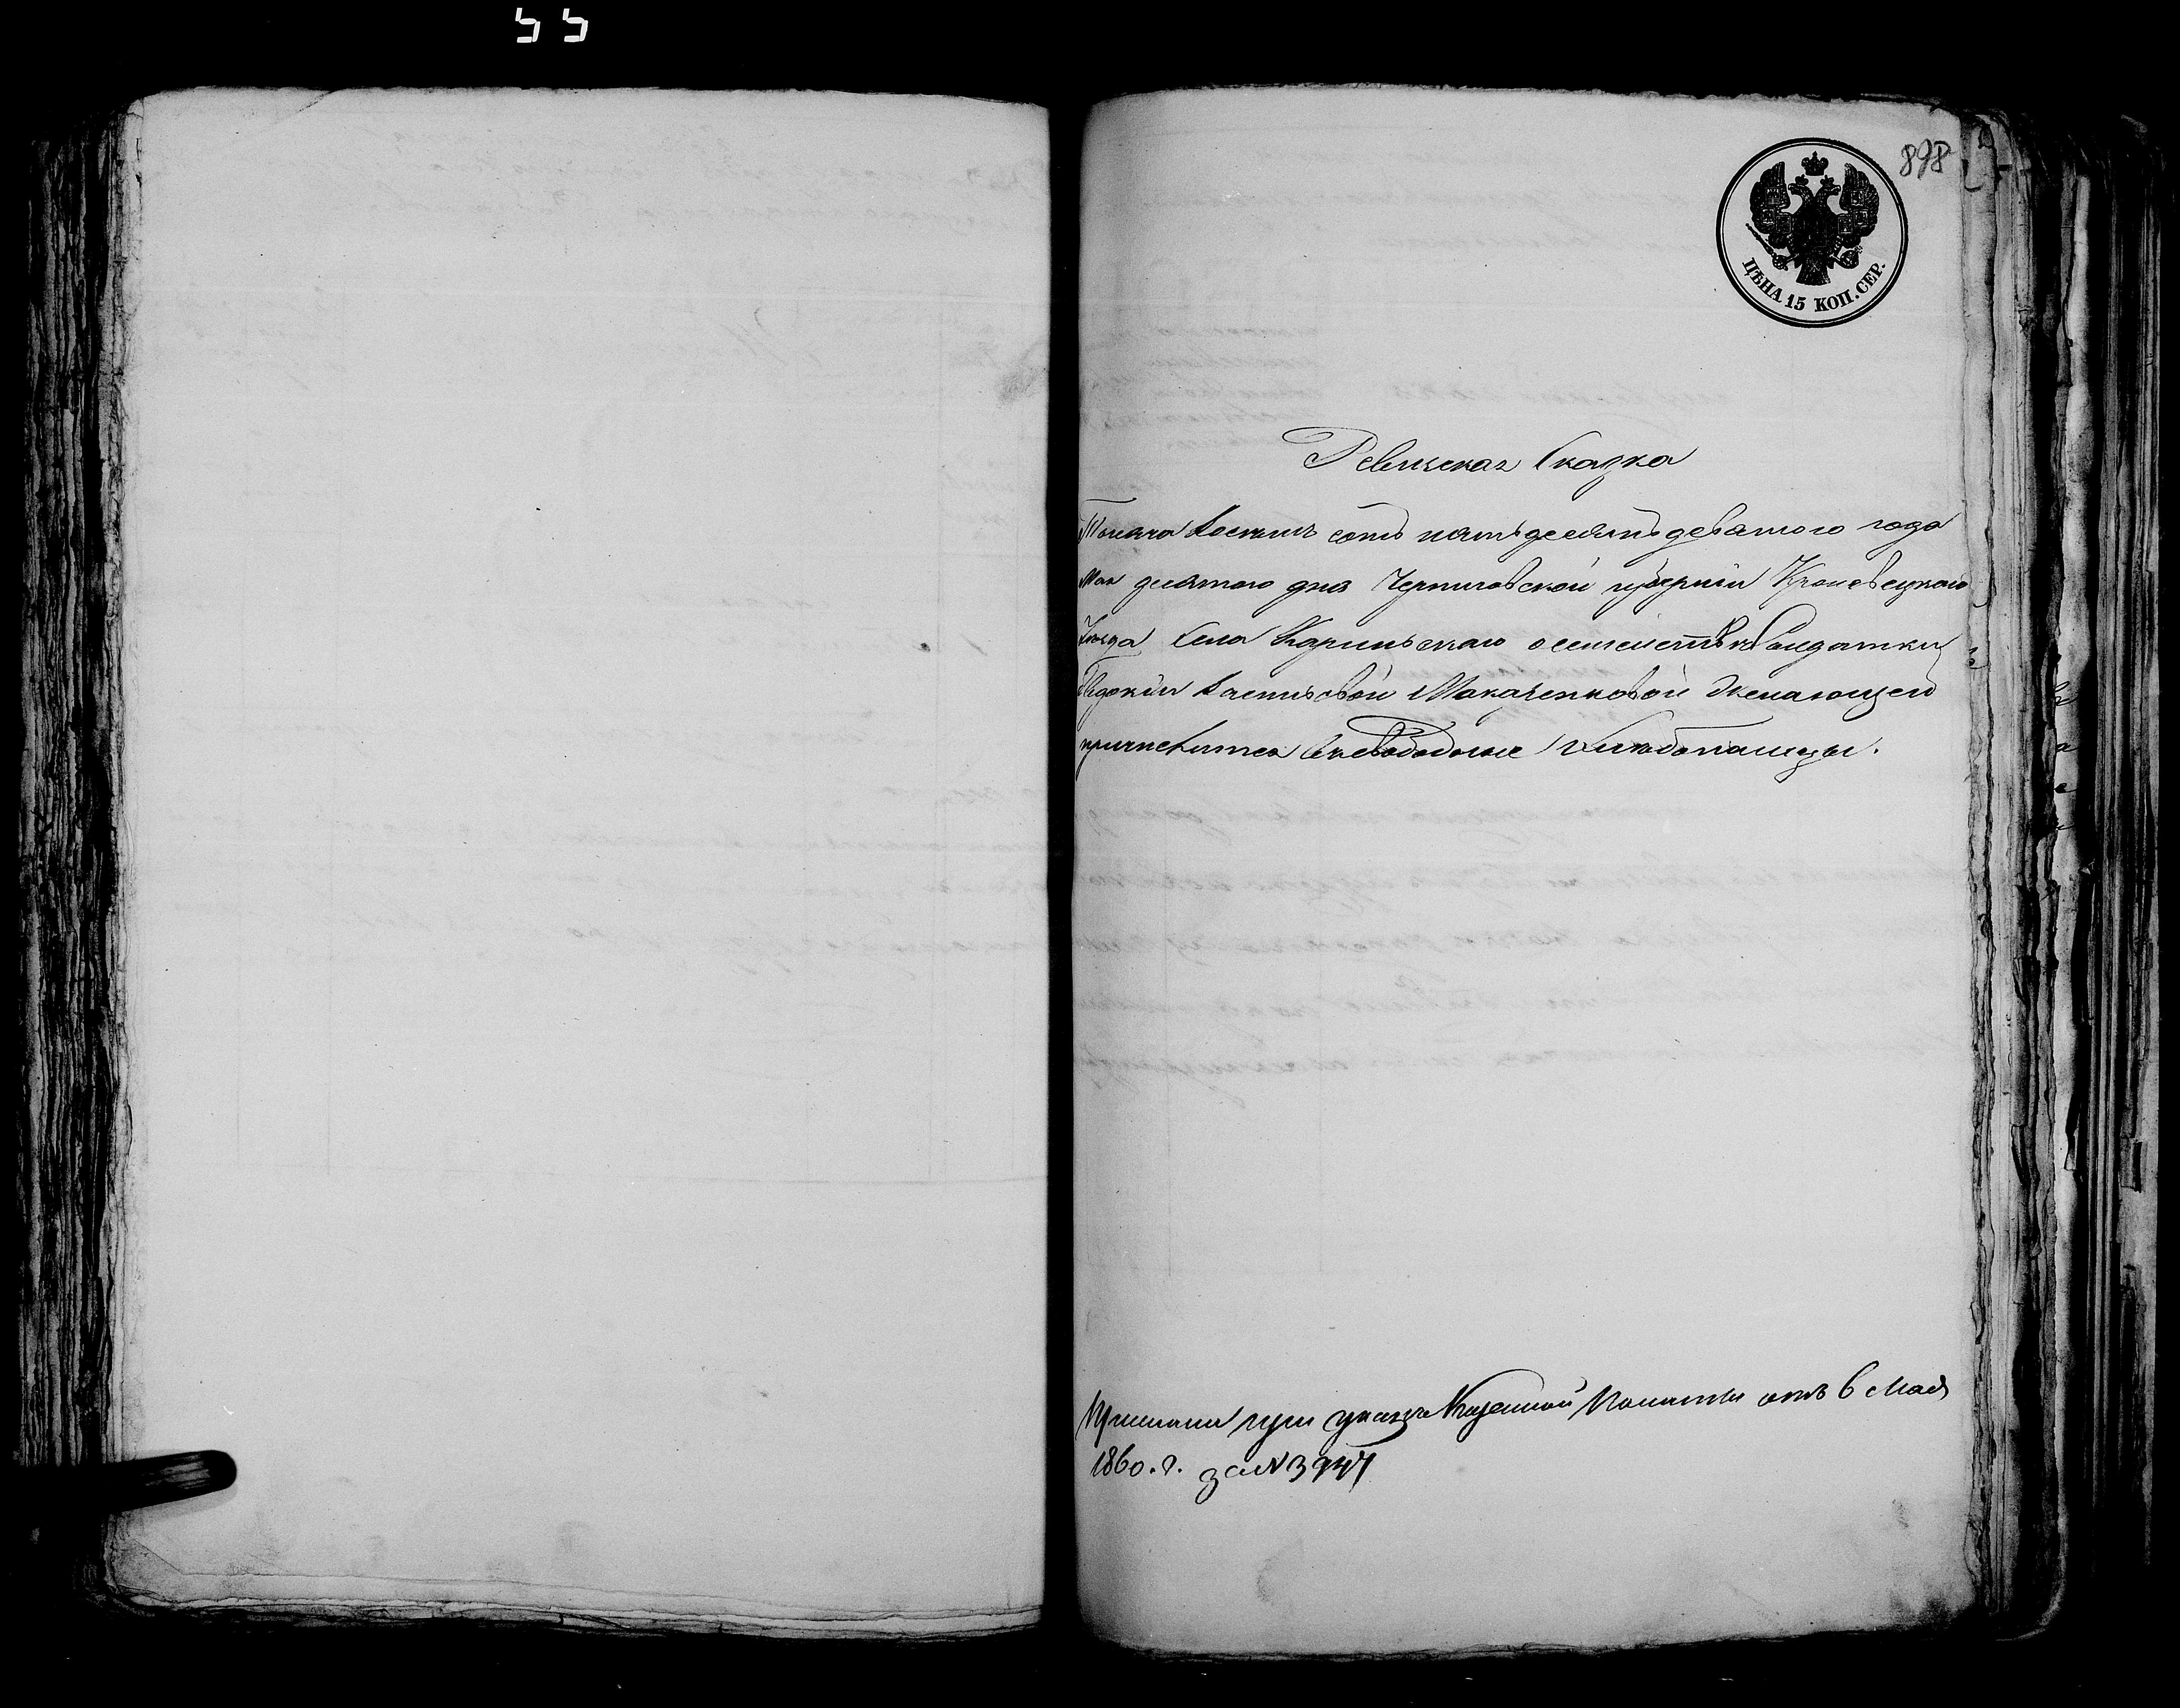 55
898
ЦѢНА 15 КОП. СЕР.
Ревизская Сказка
Тысяча восемь сотъ пятьдесятъ девятого года
мая десятого дня Черниговской губерніи Кролевецкого
уѣзда села Карильскаго о семействѣ Солдатки
Евдокіи Васильевой Макаренковой Желающей
причислится свободные хлебопашцы.
при указе Казенной Палаты отъ 6 Мая
1860. г. за №